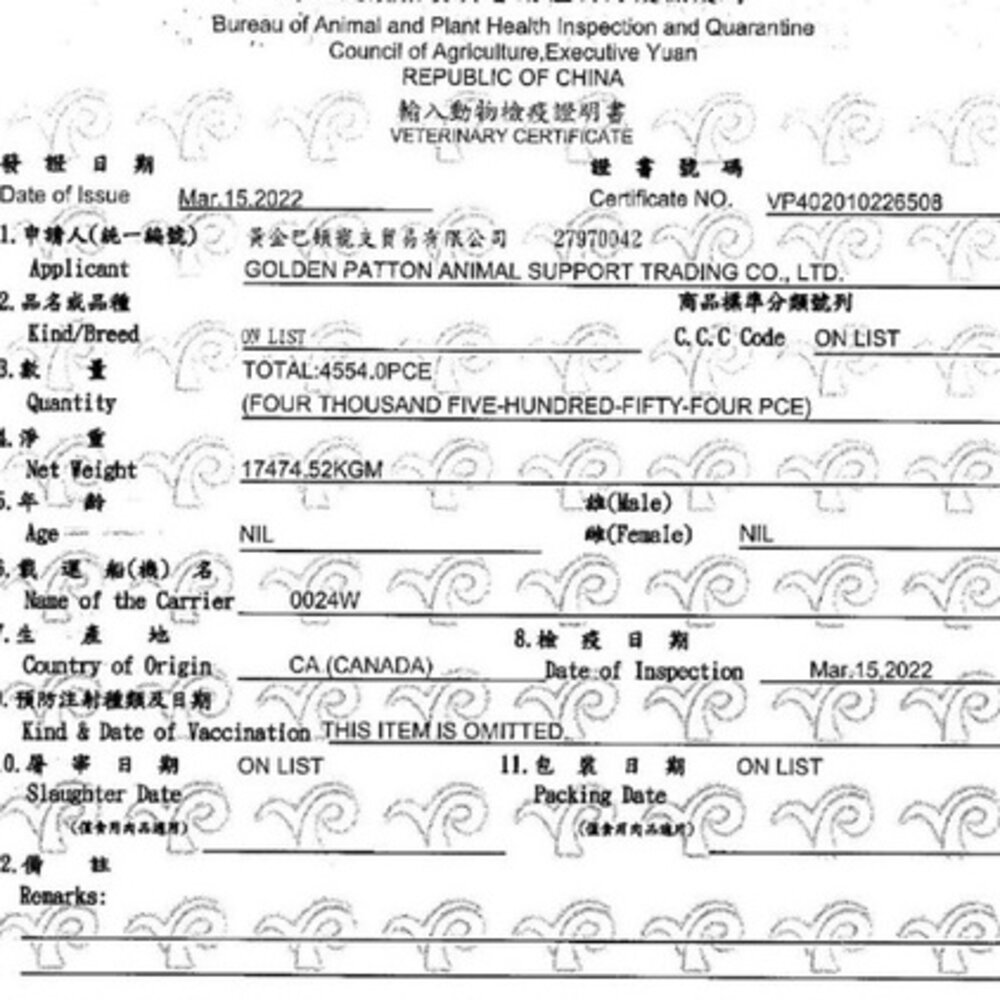 Bureau of Animal and Plant Health Inspection and Quarantine
Council of Agriculture,Executive Yuan
REPUBLIC OF CHINA
輸入動物檢疫證明書
VETERINARY CERTIFICATE
發證日期 證書號碼
Date of Issue Mar.15,2022 Certificate NO. VP402010226508
1.申請人(統一編號) 黃金巴頓寵支貿易有限公司 27970042
Applicant GOLDEN PATTON ANIMAL SUPPORT TRADING CO., LTD.
2.品名或品種 商品標準分類號列
Kind/Breed ON LIST C.C.C Code ON LIST
3.數量 TOTAL:4554.0PCE
Quantity (FOUR THOUSAND FIVE-HUNDRED-FIFTY-FOUR PCE)
4.淨重
Net Weight 17474.52KGM
5.年齡 雄(Male)
Age NIL 雌(Female) NIL
6.載運船(機)名
Name of the Carrier 0024W
7.生產地 8.檢疫日期
Country of Origin CA (CANADA) Date of Inspection Mar.15,2022
9.預防注射種類及日期
Kind & Date of Vaccination THIS ITEM IS OMITTED.
0.屠宰日期 ON LIST 11.包裝日期 ON LIST
Slaughter Date Packing Date
(僅食用肉品適用) (僅食用肉品適用)
2.備註
Remarks: